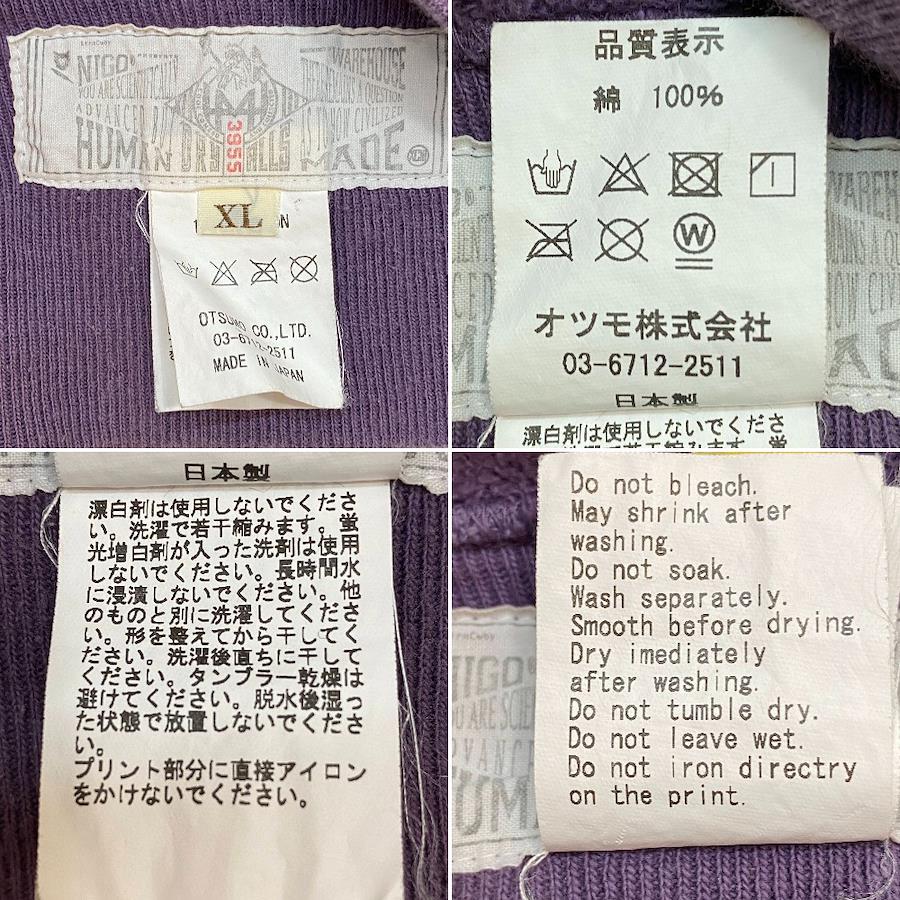 NIGO®
WAREHOUSE
YOU ARE SCIENTIFICALLY
ADVANCED
HUMAN
DRY ALLS
MADE
3955
XL
OTSUMO CO., LTD.
03-6712-2511
MADE IN JAPAN
品質表示
綿 100%
W
オツモ株式会社
03-6712-2511
日本製
漂白剤は使用しないでくださ
WAREHOUSE
日本製
漂白剤は使用しないでくださ
い。洗濯で若干縮みます。蛍
光増白剤が入った洗剤は使用
しないでください。長時間水
に浸漬しないでください。他
のものと別に洗濯してくださ
い。形を整えてから干してく
ださい。洗濯後直ちに干して
ください。タンブラー乾燥は
避けてください。脱水後湿っ
た状態で放置しないでくださ
い。
プリント部分に直接アイロン
をかけないでください。
Do not bleach.
May shrink after
washing.
Do not soak.
Wash separately.
Smooth before drying.
Dry imediately
after washing.
Do not tumble dry.
Do not leave wet.
Do not iron directry
on the print.
NIGO®